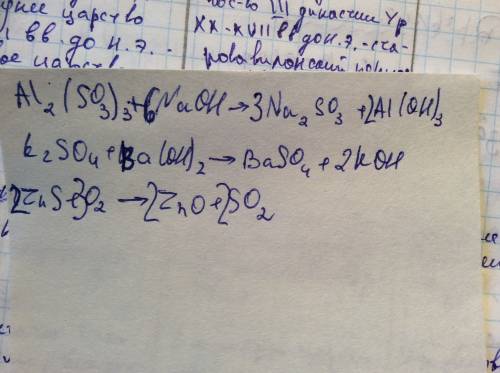 днее царство
вв. до н. э.
III династии Ур
XX-XVII вв до н. э. - ста-
Al₂(SO₃)₃+6NaOH→3Na₂SO₃+2Al(OH)₃
k₂SO₄+Ba(OH)₂→BaSO₄+2KOH
2ZnS+3O₂→2ZnO+2SO₂